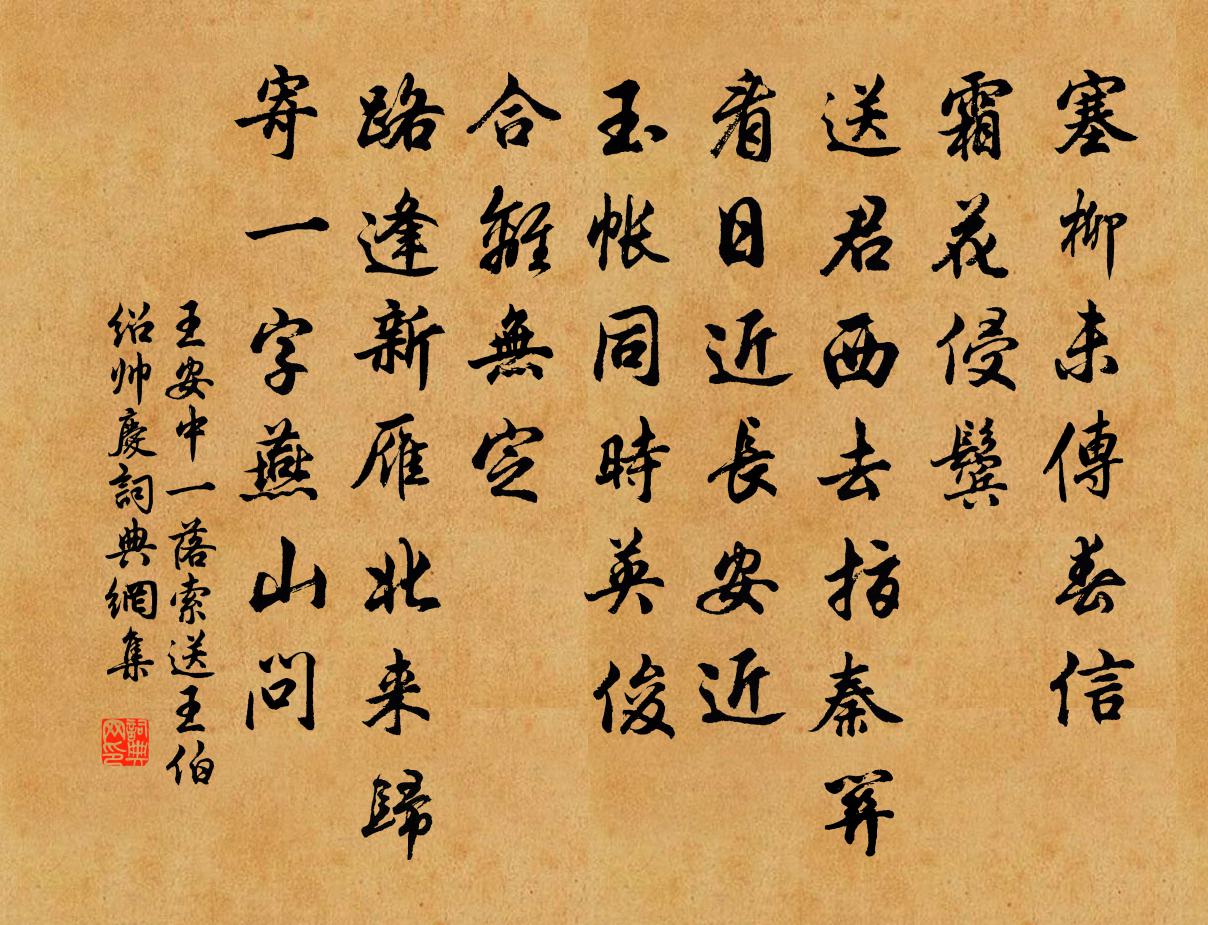 塞栁未傳春信
霜花侵鬢
送君西去指秦關
看日近長安近
玉帳同時英俊
合離無定
路逢新雁北来歸
寄一字燕山問
王安中一落索送王伯
紹帅慶詞典網集
詞典
网印